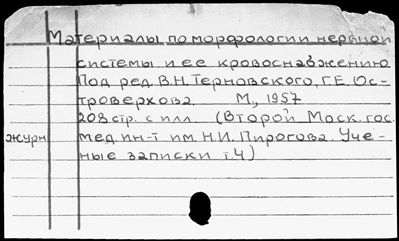 Материалы по морфологии нервной
системы и ее кровоснабжению
Под ред. В.Н. Терновского, Г.Е. Ос-
троверхова. М., 1957
208 стр. с илл. (Второй Моск. гос.
журн мед. ин-т им. Н.И. Пирогова. Уче-
ные записки т. 4)